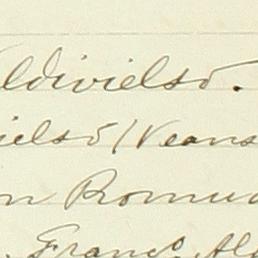 ldivielso.
ielso / Veans
n Romu
Franco, Al